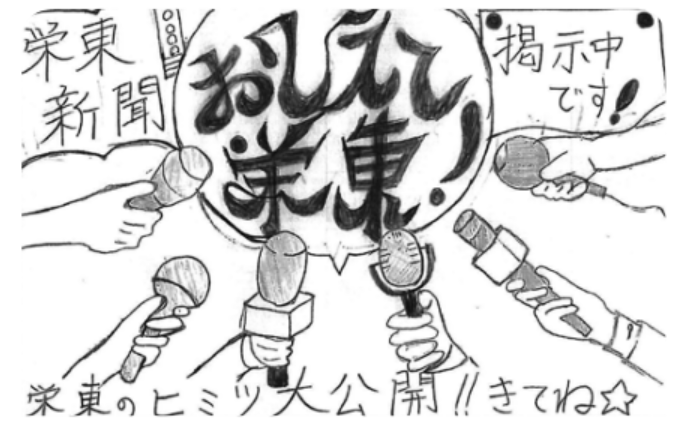 栄東
新聞
おしえて
栄東！
掲示中
です！
栄東のヒミツ大公開!!きてね☆